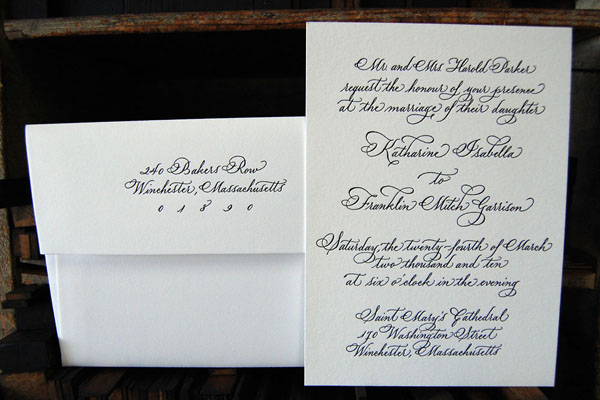 240 Bakers Row
Winchester, Massachusetts
0 1 8 9 0
Mr. and Mrs. Harold Parker
request the honour of your presence
at the marriage of their daughter
Katharine Isabella
to
Franklin Mitch Garrison
Saturday, the twenty-fourth of March
two thousand and ten
at six o'clock in the evening
Saint Mary's Cathedral
170 Washington Street
Winchester, Massachusetts